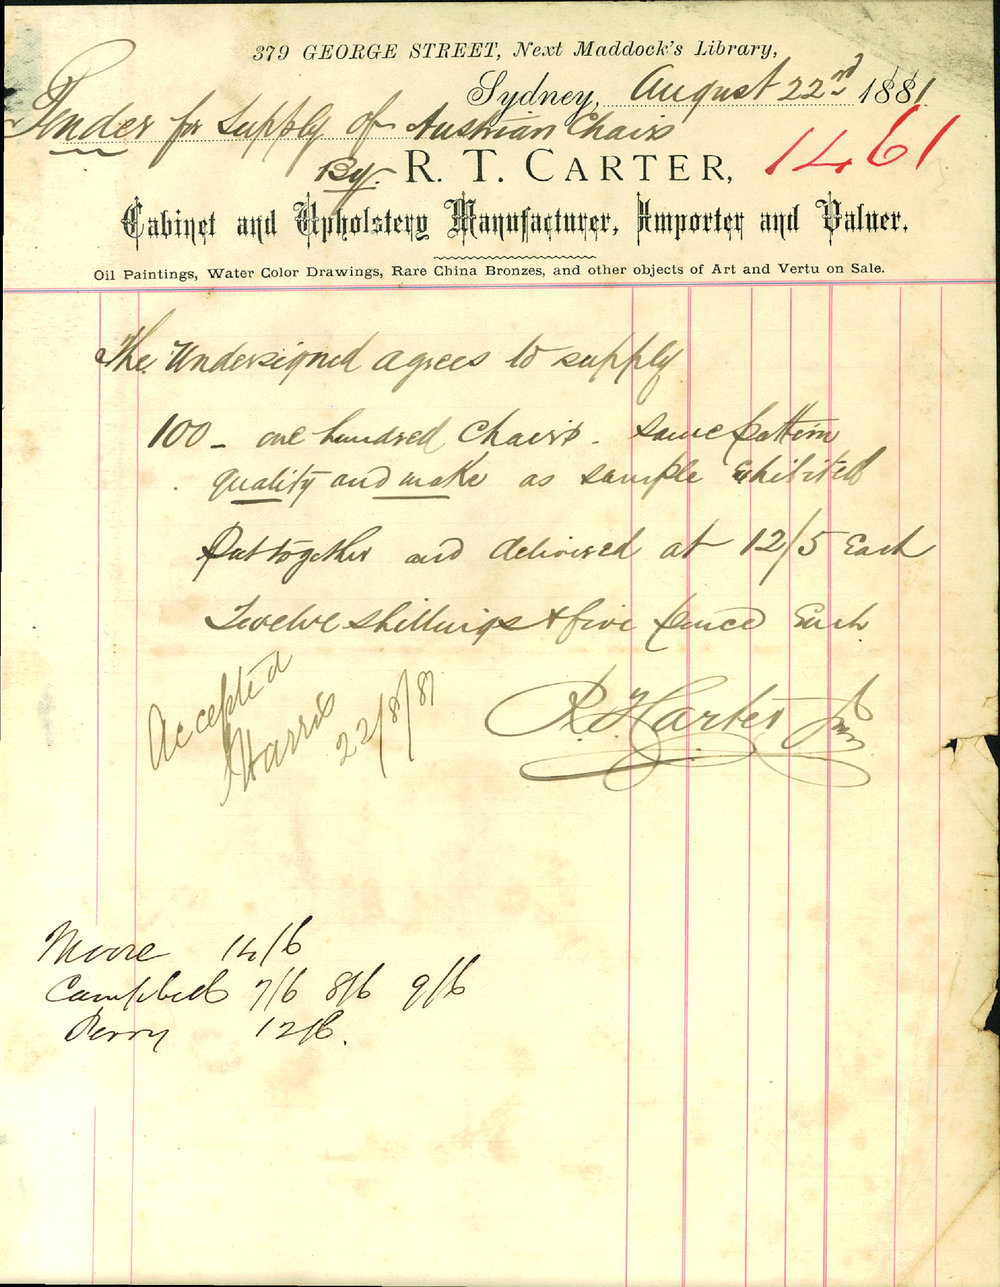 379 GEORGE STREET, Next Maddock's Library,
Sydney, August 22nd 1881
Tender for supply of Austrian Chairs
1461
By R. T. CARTER,
Cabinet and Upholstery Manufacturer, Importer and Valuer.
Oil Paintings, Water Color Drawings, Rare China Bronzes, and other objects of Art and Vertu on Sale.
The Undersigned agrees to supply
100 - one hundred Chairs. same pattern
quality and make as sample Exhibited
Put together and delivered at 12/5 Each
Twelve shillings & five pence Each
R. T. Carter Jun
Accepted
Harris
22/8/81
Moore 14/6
Campbell 7/6 8/6 9/6
Perry 12/6.